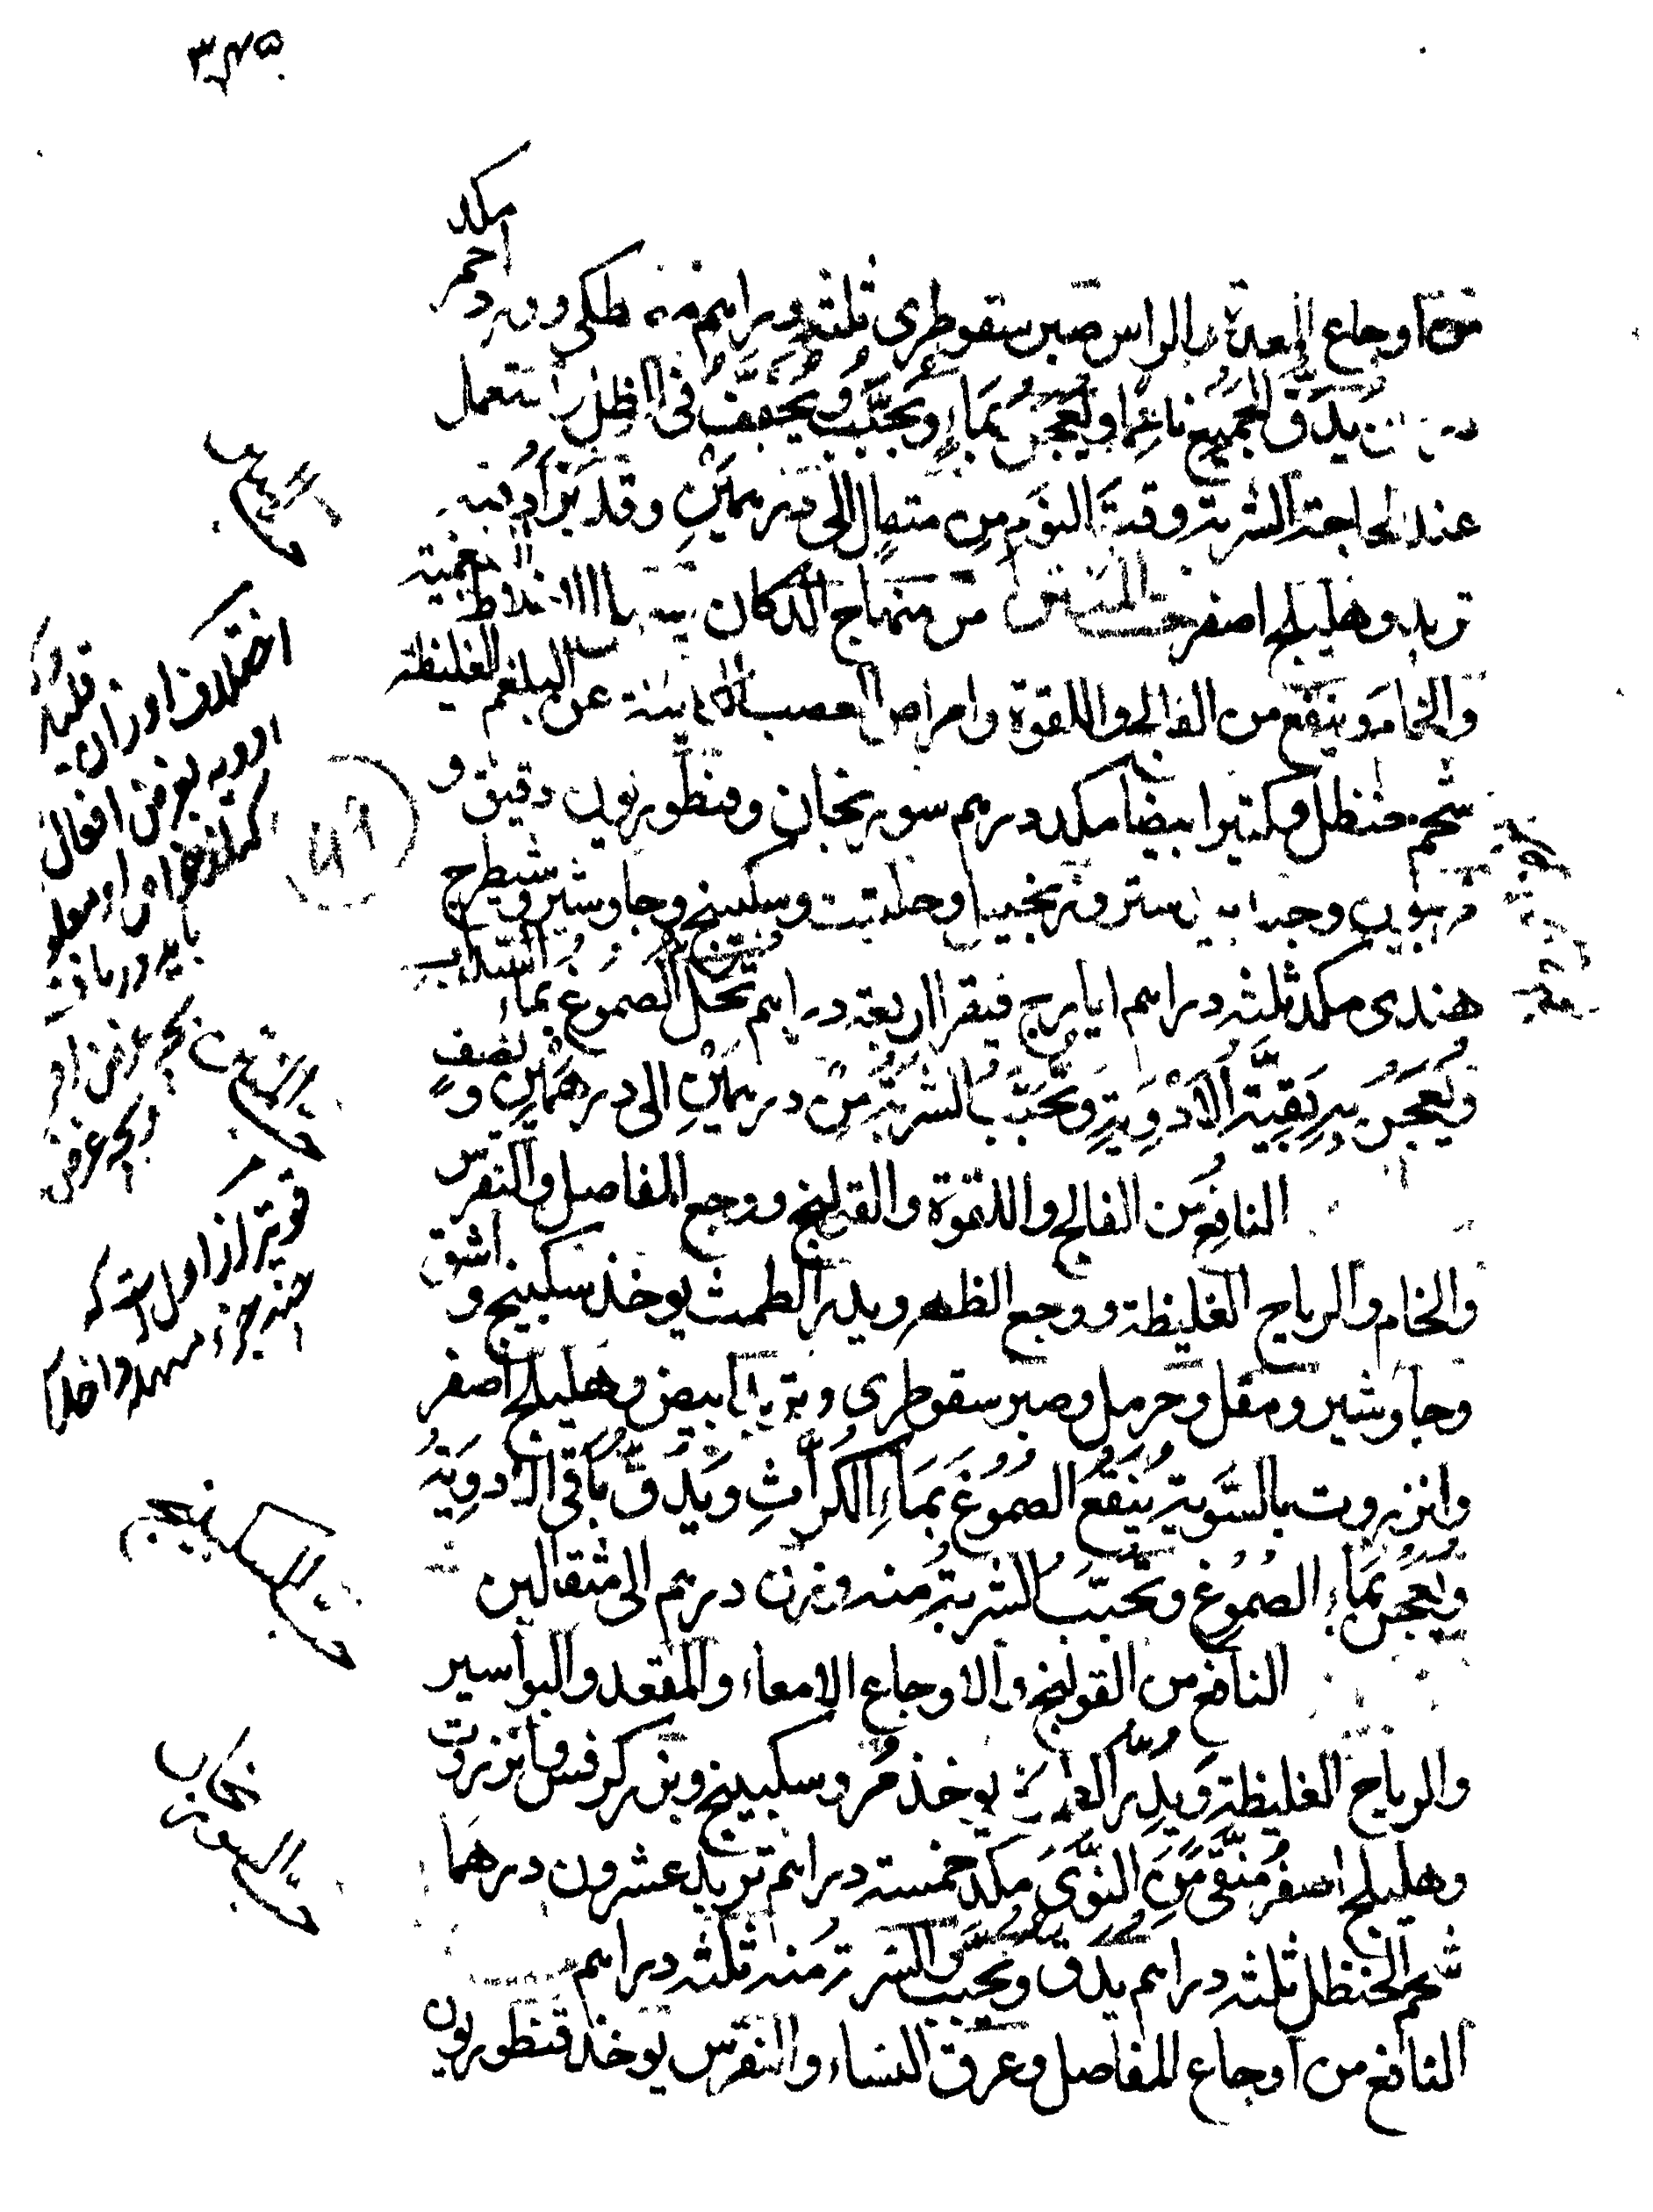 ۳۴۵
اوجاع المعدة والراس صبر سقوطرى ثلثه دراهم مصطكى وورد احمر مكد
يُدَقُّ الجميعُ ناعِمًا ويُعجَنُ بماءٍ ويُحَبَّبُ ويُجففُ فى الظِلِّ ويُستعمل
عند الحاجة الشربة وقت النوم من مثقال الى درهمَيْنِ وقد يُزاد فيه
تربد وهليلج اصفر حب المنتن من منهاج الدكان الاخلاط البلغمية
والخام وينفع من الفالج واللقوة وامراض العصب الكاينة عن البلغم الغليظة
شحم حنظل وكثيرا بيضا مكد درهم سورنجان وقنطوريون دقيق و
فربيون وجندبيدستر وزنجبيل وحلتيت وسكبينج وجاوشير وشيطرج
هندى مكد ثلثه دراهم ايارج فيقرا اربعة دراهم تحل الصموغ بماء السَّذاب
ويُعجَنُ به بَقِيَّة الادْوِيَةِ ويُحَبَّبُ الشربَةُ من درهمَيْنِ الى درهمَيْنِ ونصفٍ
النافع من الفالج واللقوة والقولنج ووجع المفاصل والنقرس
والخام والرياح الغليظة ووجع الظهر ويدر الطمث يوخذ سكبينج و اشق
وجاوشير ومقل وحرمل وصبر سقوطرى وتربد ابيض وهليلج اصفر
وانزروت بالسَّوية يُنقَعُ الصُموُغَ بماءِ الكرَّاثِ ويُدَقُّ باقى الادوِيَةُ
ويُعجن بماءِ الصُموُغِ ويُحبَّبُ الشربة منه وزن درهم الى مثقالين
النافع من القولنج والاوجاع الامعاء والمقعد والبواسير
والرياح الغليظة ويدر الطمث يوخذ مُر وسكبينج وبزر كرفس وانزروت
وهليلج اصفر مُنقَّى مِنَ النَّوَى مكد خمسة دراهم تربد عشرون درهما
شحم الحنظل ثلثه دراهم يُدَق ويُحَبَّب الشربة منه ثلثه دراهم
النافع من اوجاع المفاصل وعرق النساء والنقرس يوخذ قنطوريون
اختلاف اوزان
ادويه بغرض افعال
قويتر از اول است كه
حب السكبينج
حب السورنجان